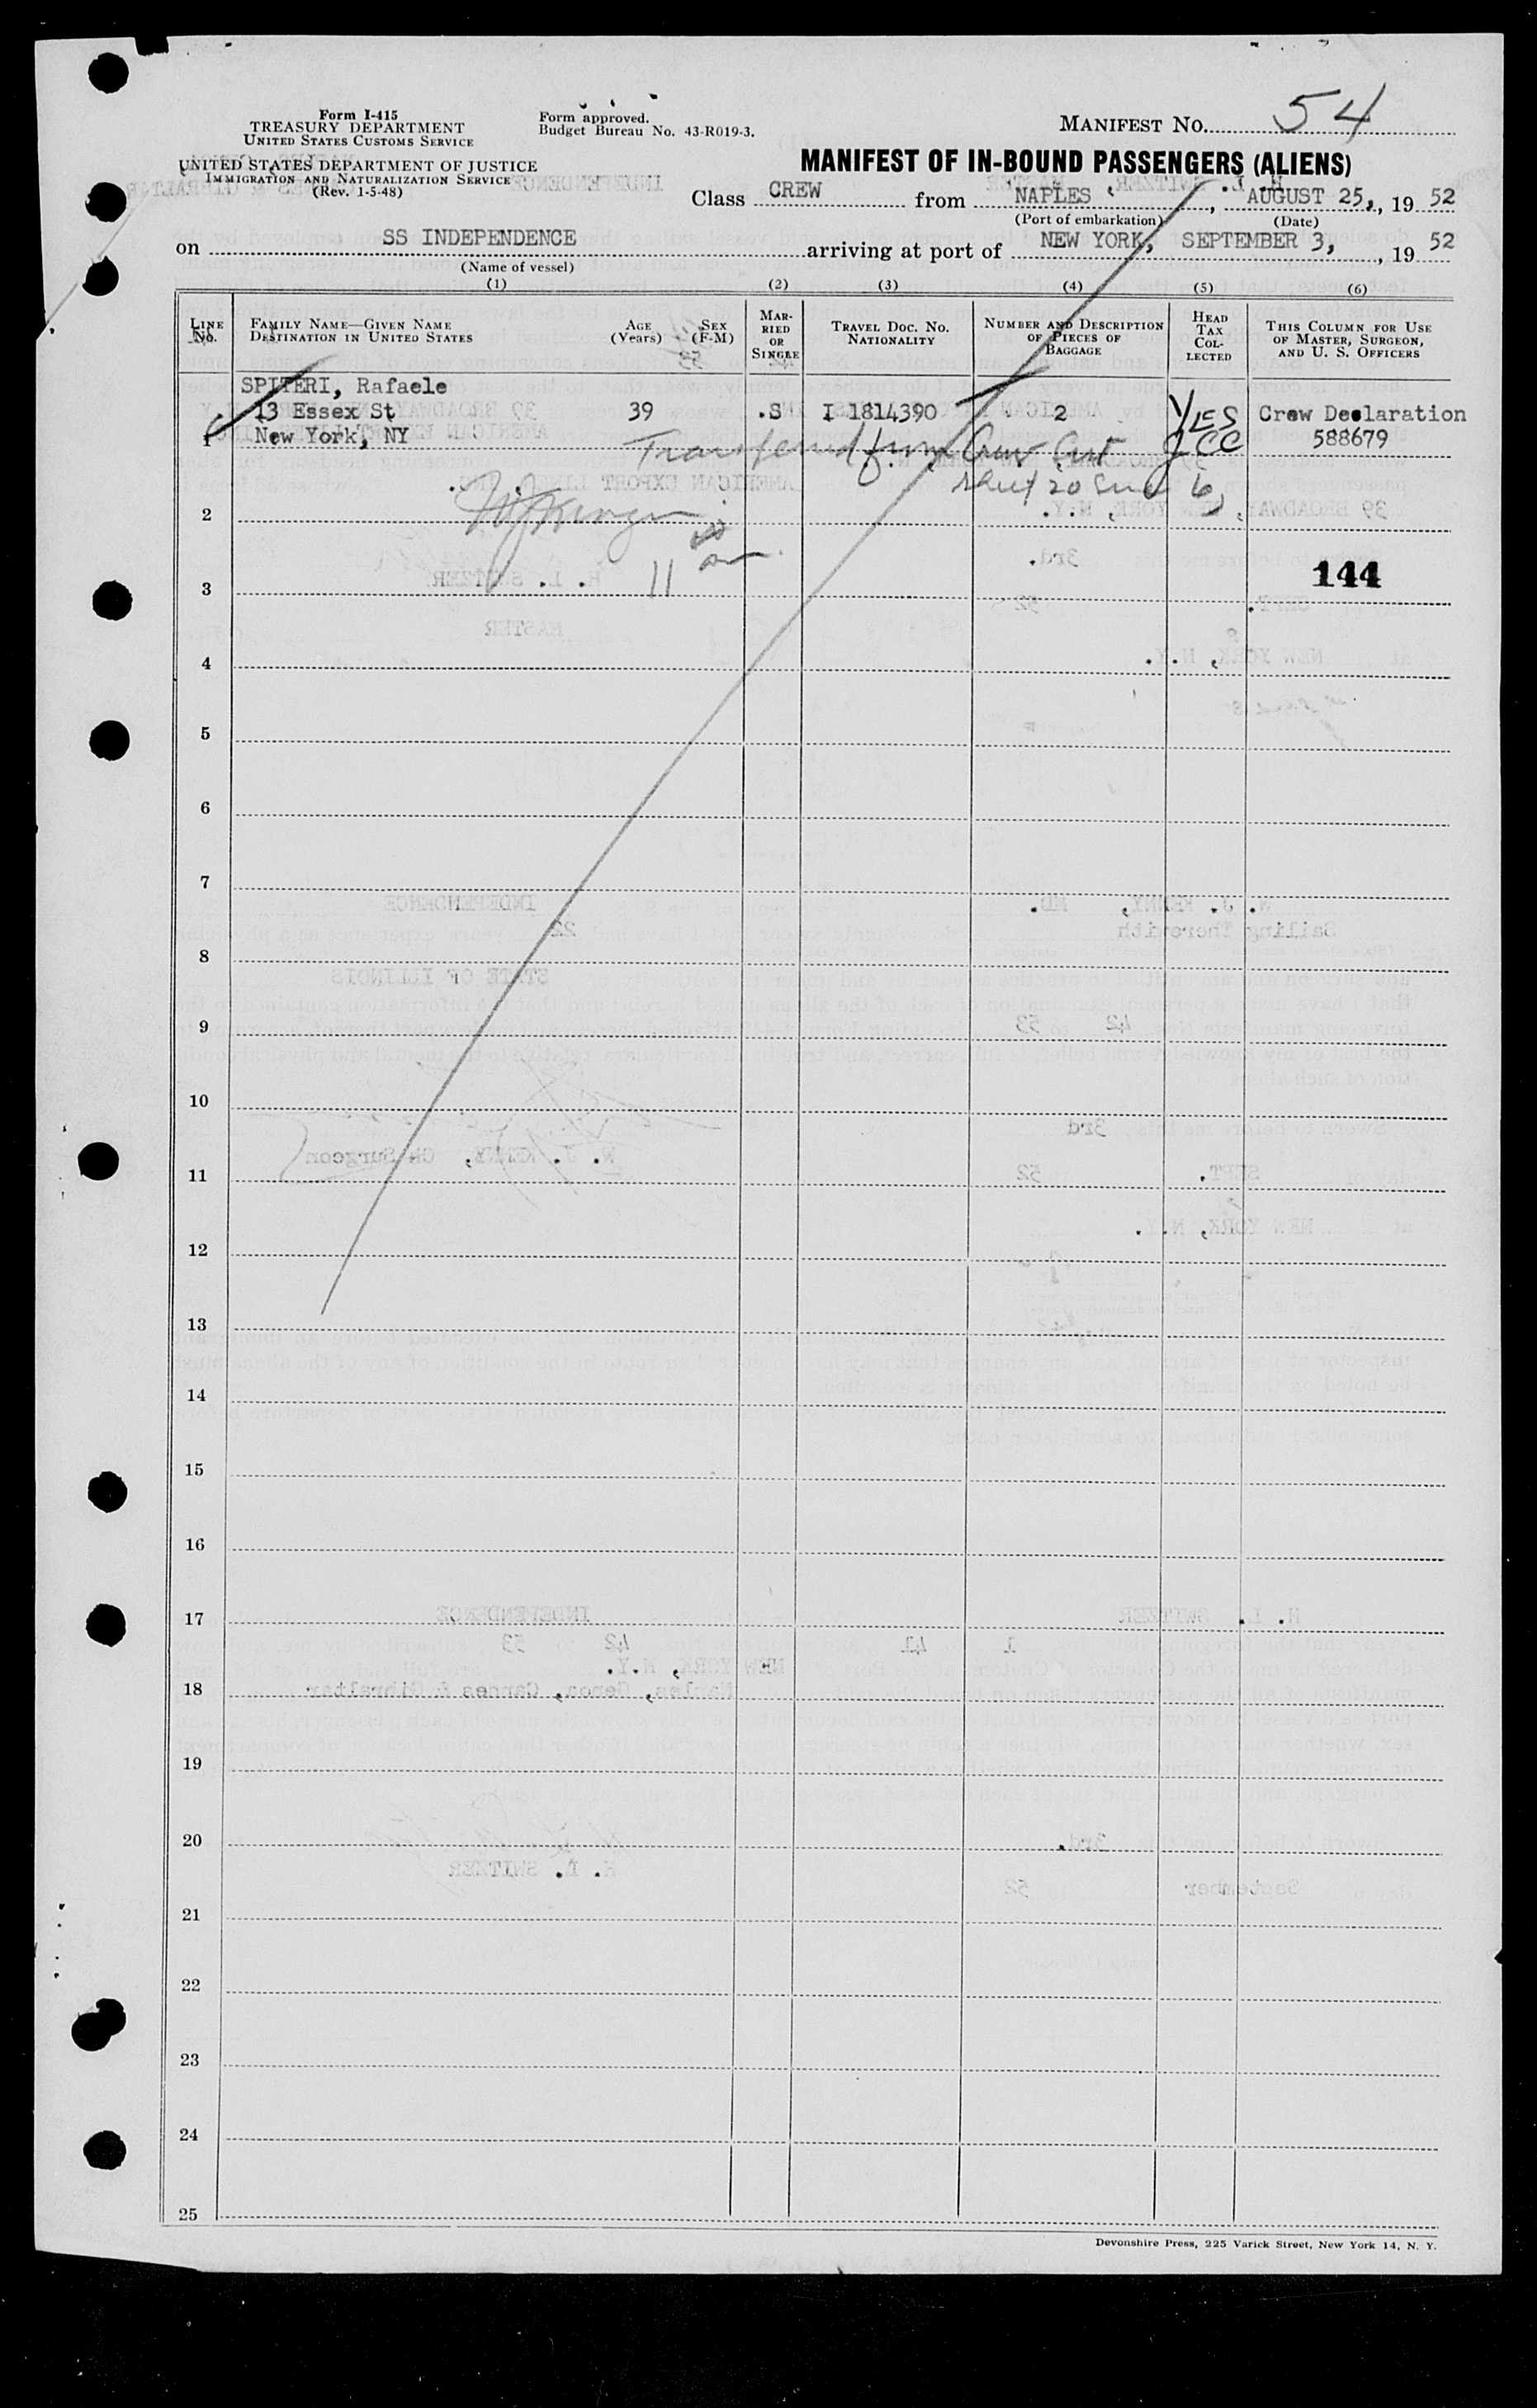 Form I-415
TREASURY DEPARTMENT
UNITED STATES CUSTOMS SERVICE
UNITED STATES DEPARTMENT OF JUSTICE
IMMIGRATION AND NATURALIZATION SERVICE
(Rev. 1-5-48)
Form approved.
Budget Bureau No. 43-R019-3.
MANIFEST No. 54
MANIFEST OF IN-BOUND PASSENGERS (ALIENS)
Class CREW from NAPLES, AUGUST 25, 19 52
(Port of embarkation) (Date)
on SS INDEPENDENCE arriving at port of NEW YORK, SEPTEMBER 3, 19 52
(Name of vessel)
(1) (2) (3) (4) (5) (6)
LINE No.
FAMILY NAME—GIVEN NAME
DESTINATION IN UNITED STATES
AGE (Years)
SEX (F-M)
MARRIED OR SINGLE
TRAVEL DOC. NO.
NATIONALITY
NUMBER AND DESCRIPTION OF PIECES OF BAGGAGE
HEAD TAX COLLECTED
THIS COLUMN FOR USE OF MASTER, SURGEON, AND U. S. OFFICERS
SPITERI, Rafaele
13 Essex St 39 S I 1814390 2 YES Crew Declaration
1 New York, NY 588679
Transferred from Crew List
sheet 20 line 6
2
11
3
144
4
5
6
7
8
9
10
11
12
13
14
15
16
17
18
19
20
21
22
23
24
25
Devonshire Press, 225 Varick Street, New York 14, N. Y.